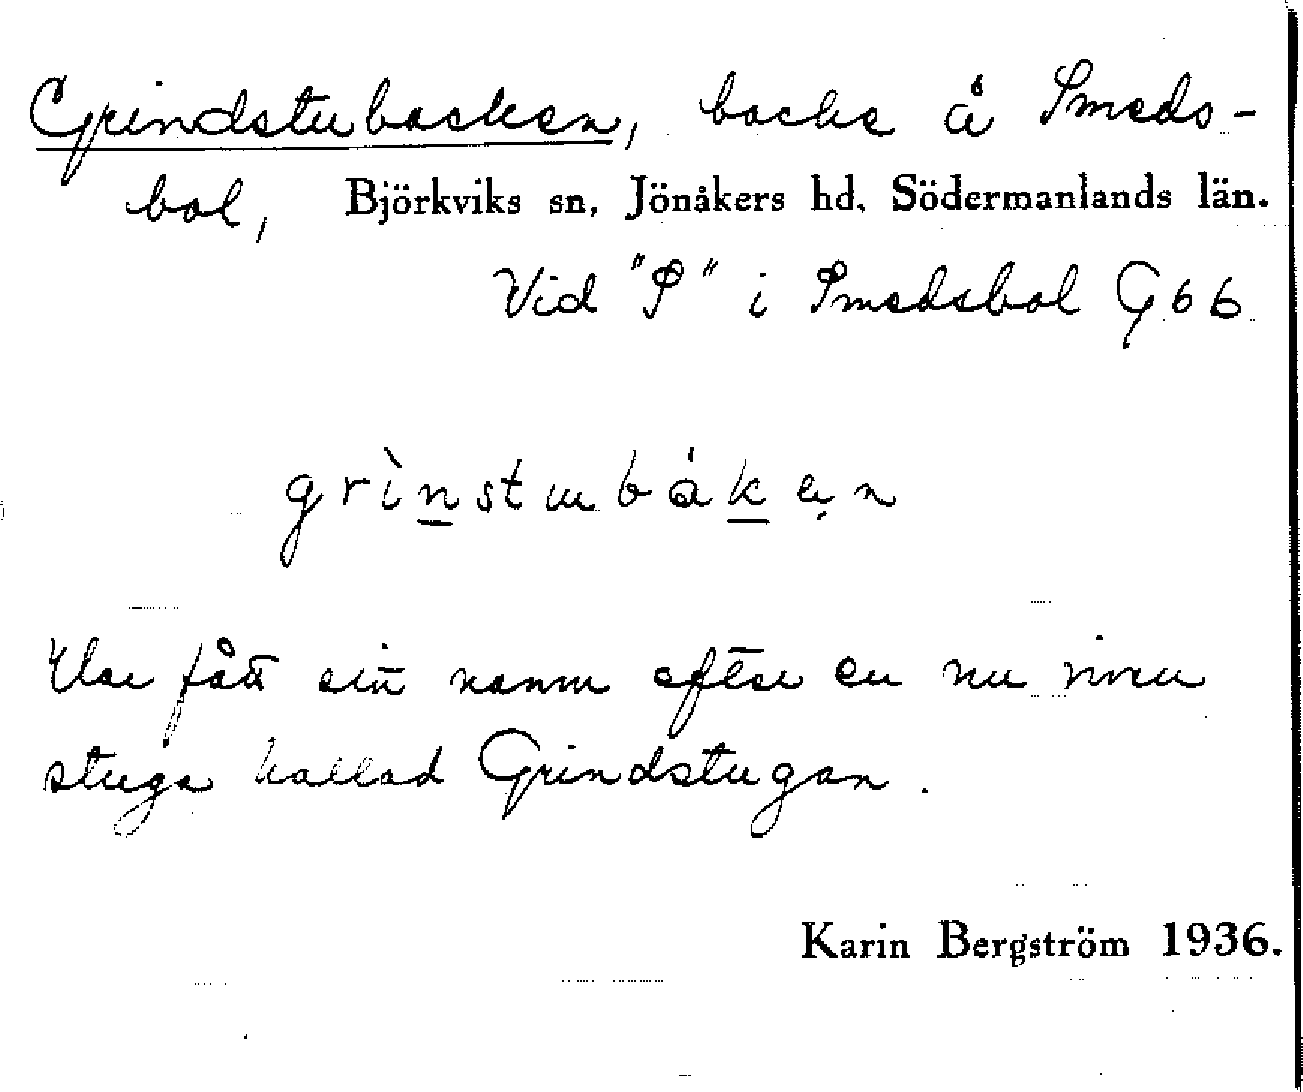 Grindstubacken, backe å Smeds-
bol, Björkviks sn, Jönåkers hd, Södermanlands län.
Vid "S" i Smedsbol G 66
grìnstubákẹn
Har fått sitt namn efter en nu riven
stuga kallad Grindstugan.
Karin Bergström 1936.